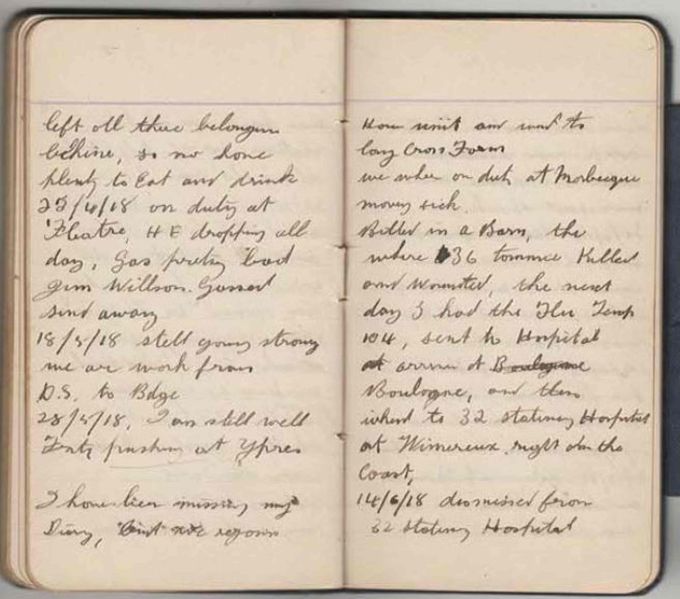 left all there belongins
behine, so we have
plenty to Eat and drink
25/4/18 on duty at
Fleatre, H E dropping all
day, Gas pretty bad
Jim Willson. Gassed
send away
18/5/18 still going strong
we are work from
D.S. to Bdge
28/5/18, I am still well
Fritz pushing at Ypres
I have been missing my
Diary, but we rejoin
Home unit and went to
long Cross Farm
we wher on duty at Morbecque
moving sick.
Billed in a Barn, the
where 36 tommie Killed
and wounted, the next
day I had the Flu Temp
104, sent to Hospital
arrive at
Boulogne, and then
whent to 32 stationy Hospital
at Wimereux. right on the
Coast,
14/6/18 dismissed from
32 stationy Hospital